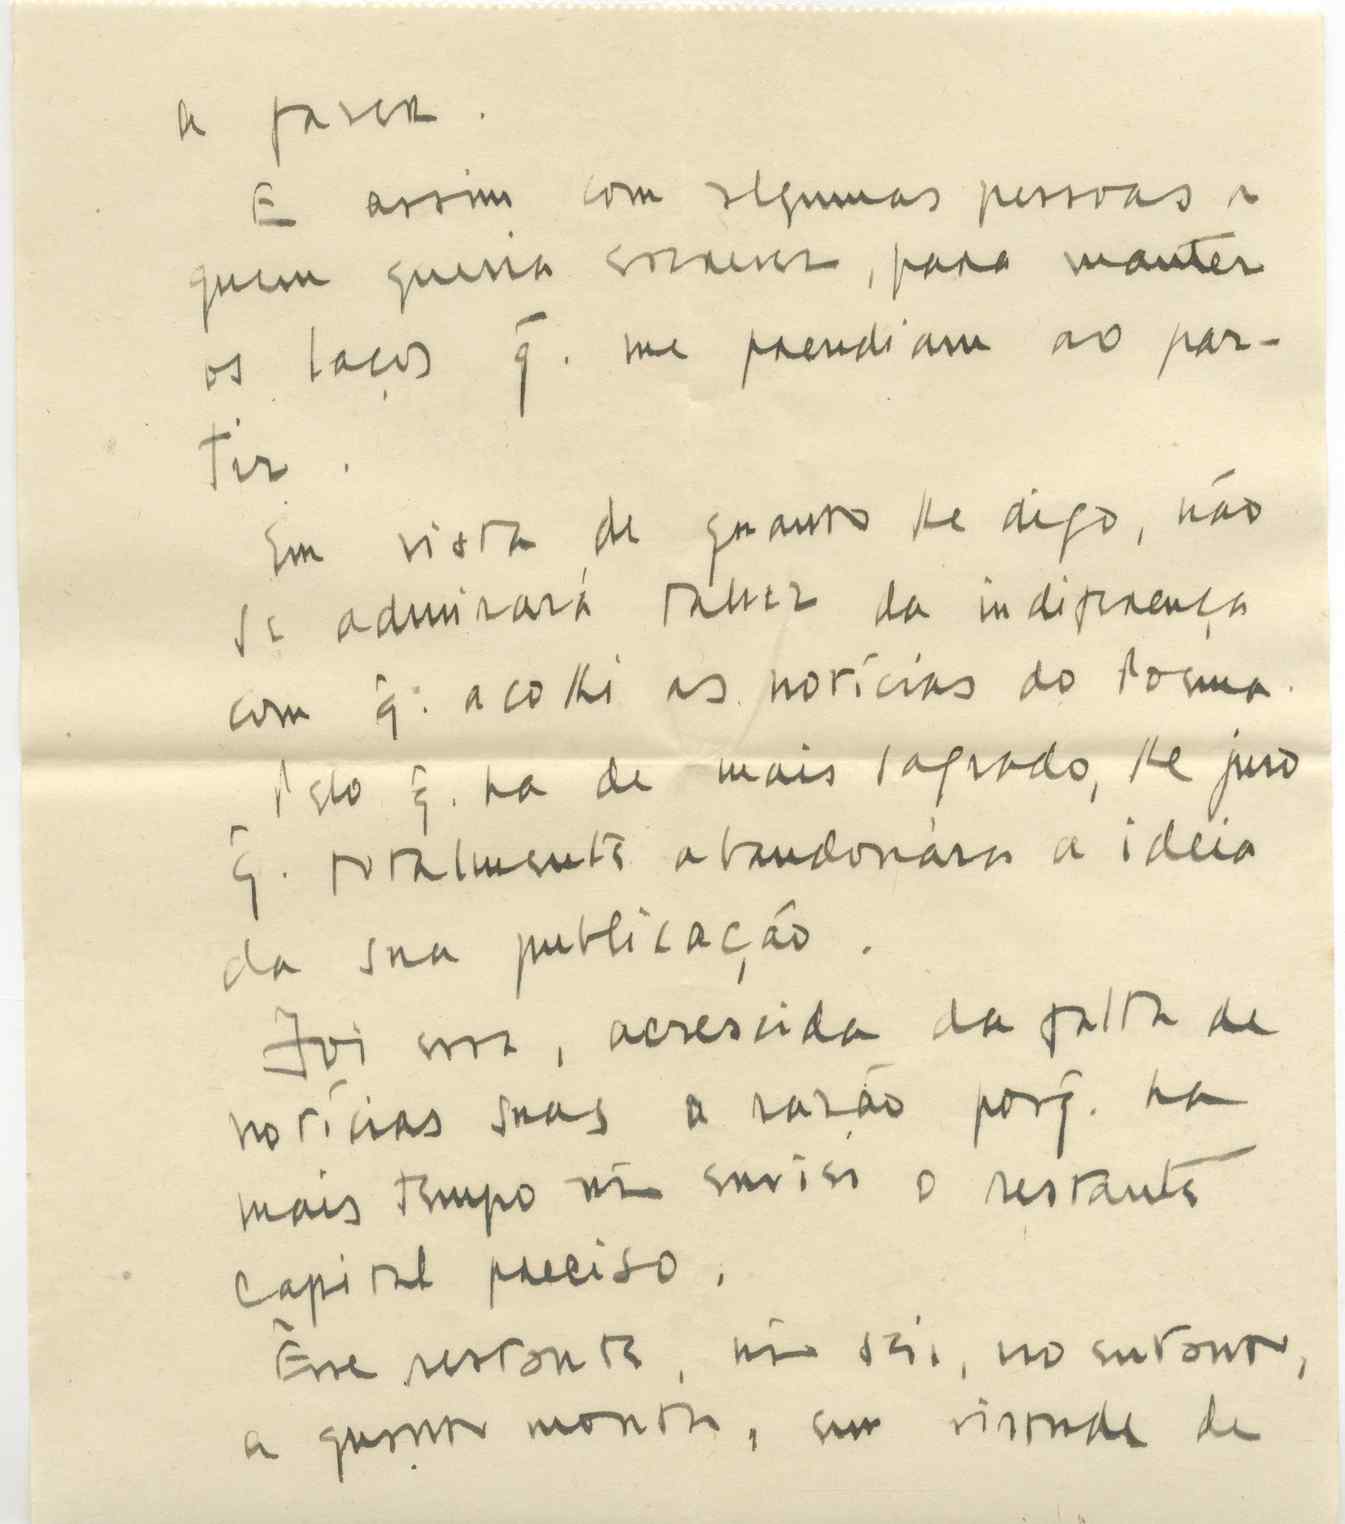 a fazer.
E assim com algumas pessoas a
quem queria escrever, para manter
os laços q̃. me prendiam ao par-
tir.
Em vista de quanto lhe digo, não
se admirará talvez da indiferença
com q̃. acolhi as notícias do Poema.
Pelo q̃. ha de mais sagrado, lhe juro
q̃. totalmente abandonára a ideia
da sua publicação.
Foi essa, acrescida da falta de
notícias suas a razão porq̃. ha
mais tempo nã enviei o restante
capital preciso.
Êsse restante, nã sei, no entanto,
a quanto monta, em virtude de